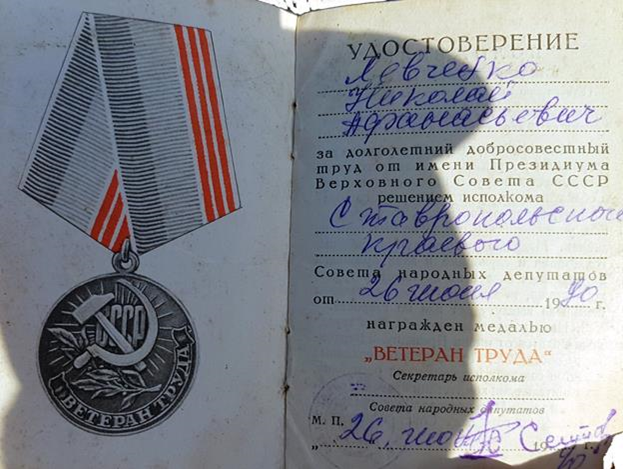 СССР
ВЕТЕРАН ТРУДА
УДОСТОВЕРЕНИЕ
Левченко
Николай
Афанасьевич
за долголетний добросовестный
труд от имени Президиума
Верховного Совета СССР
решением исполкома
Ставропольского
краевого
Совета народных депутатов
от 26 июня 1990 г.
награжден медалью
„ВЕТЕРАН ТРУДА“
Секретарь исполкома
Совета народных депутатов
М. П.
„26
19 г.